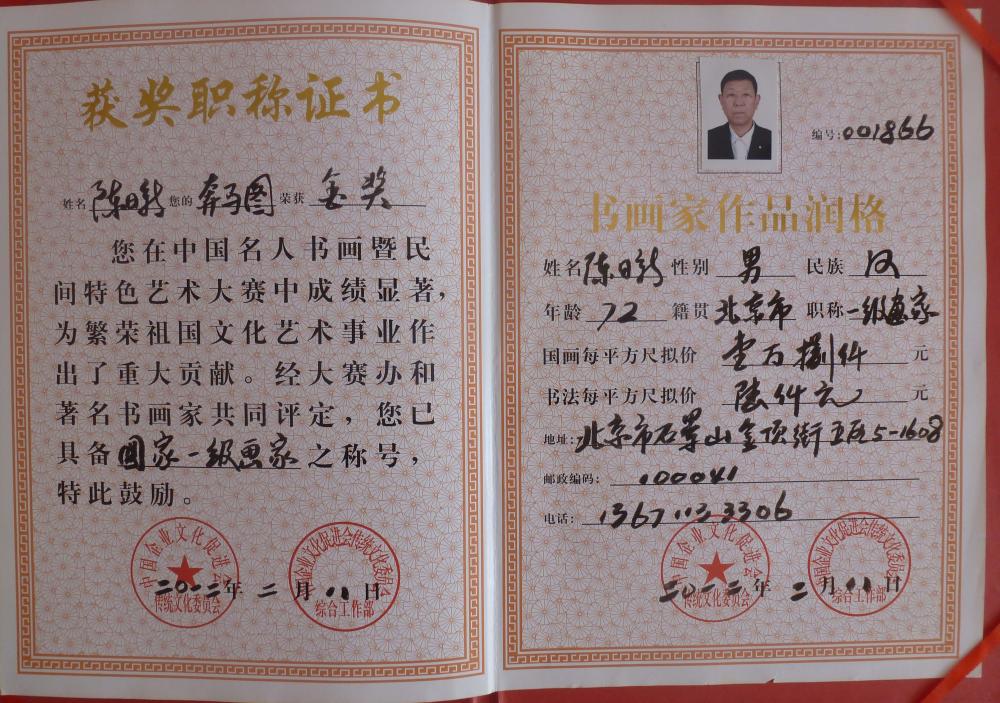 获奖职称证书
姓名 陈日新 您的 奔马图 荣获 金奖
您在中国名人书画暨民
间特色艺术大赛中成绩显著,
为繁荣祖国文化艺术事业作
出了重大贡献。经大赛办和
著名书画家共同评定,您已
具备国家一级画家之称号,
特此鼓励。
中国企业文化促进会
传统文化委员会
中国企业文化促进会传统文化委员会
综合工作部
二〇二二年二月八日
编号:001866
书画家作品润格
姓名 陈日新 性别 男 民族 汉
年龄 72 籍贯 北京市 职称 一级画家
国画每平方尺拟价 壹万捌仟 元
书法每平方尺拟价 陆仟元 元
地址:北京市石景山金顶街五区5-1608
邮政编码:100041
电话:13671133306
中国企业文化促进会
传统文化委员会
中国企业文化促进会传统文化委员会
综合工作部
二〇二二年二月八日